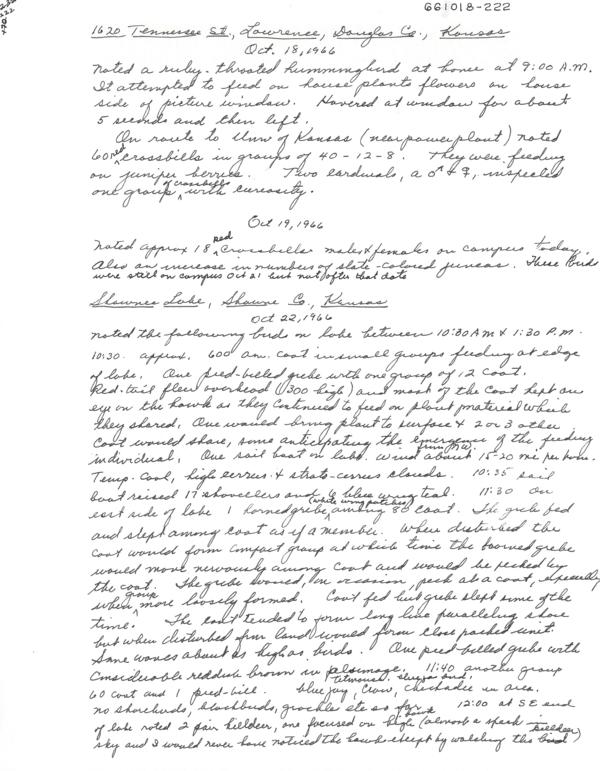 661018-222
1620 Tennessee St., Lawrence, Douglas Co., Kansas
Oct. 18, 1966
Noted a ruby-throated hummingbird at home at 9:00 A.M.
It attempted to feed on house plants flowers on house
side of picture window. Hovered at window for about
5 seconds and then left.
On route to Univ of Kansas (near power plant) noted
60 red crossbills in groups of 40-12-8. They were feeding
on juniper berries. Two cardinals, a ♂ & ♀, inspected
one group of crossbills with curiosity.
Oct 19, 1966
Noted approx 18 red crossbills males & females on campus today.
Also an increase in numbers of slate-colored juncos. These birds
were still on campus Oct 21 but not after that date
Shawnee Lake, Shawne Co., Kansas
Oct 22, 1966
Noted the following birds on lake between 10:30 AM & 1:30 P.M.
10:30 approx. 600 am. coot in small groups feeding at edge
of lake. One pied-billed grebe with one group of 12 coot.
Red-tail flew overhead (300 high) and most of the coot kept an
eye on the hawk as they continued to feed on plant material which
they shared. One would bring plant to surface & 2 or 3 other
coot would share, some anticipating the emergence of the feeding
individual. One sail boat on lake. Wind about 15-20 mi. per hour.
Temp. cool, high cirrus & strato-cirrus clouds. 10:35 sail
boat raised 17 shovellers and 6 blue wing teal. 11:30 on
(white wing patches)
east side of lake 1 horned grebe among 80 coot. The grebe fed
and slept among coot as if a member. When disturbed the
coot would form compact group at which time the horned grebe
would move nervously among coot and would be pecked by
the coot. The grebe would, on occasion, peck at a coot, especially
when group more loosely formed. Coot fed but grebe slept some of the
time. The coot tended to form long line paralleling shore
but when disturbed from land would form close packed unit.
Some waves about as high as birds. One pied-billed grebe with
considerable reddish brown in plumage. 11:40 another group
60 coot and 1 pied-bill. titmouse, blue jay, crow, chickadee in area.
No shorebirds, blackbirds, grackle etc so far. 12:00 at SE end
of lake noted 2 pair killdeer, one focused on high hawk (almost a speck
sky and I would never have noticed the hawk except by watching this killdeer)